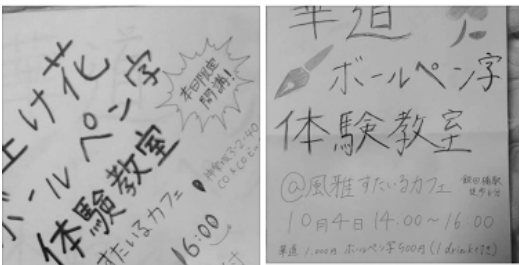 上げ花
ボールペン字
体験教室
すたいるカフェ
16:00
本日限定
開講!
神楽坂3-2-40
華道
ボールペン字
体験教室
@風雅すたいるカフェ
飯田橋駅
徒歩6分
10月4日 14:00~16:00
華道 1,000円 ボールペン字500円(1drink付き)